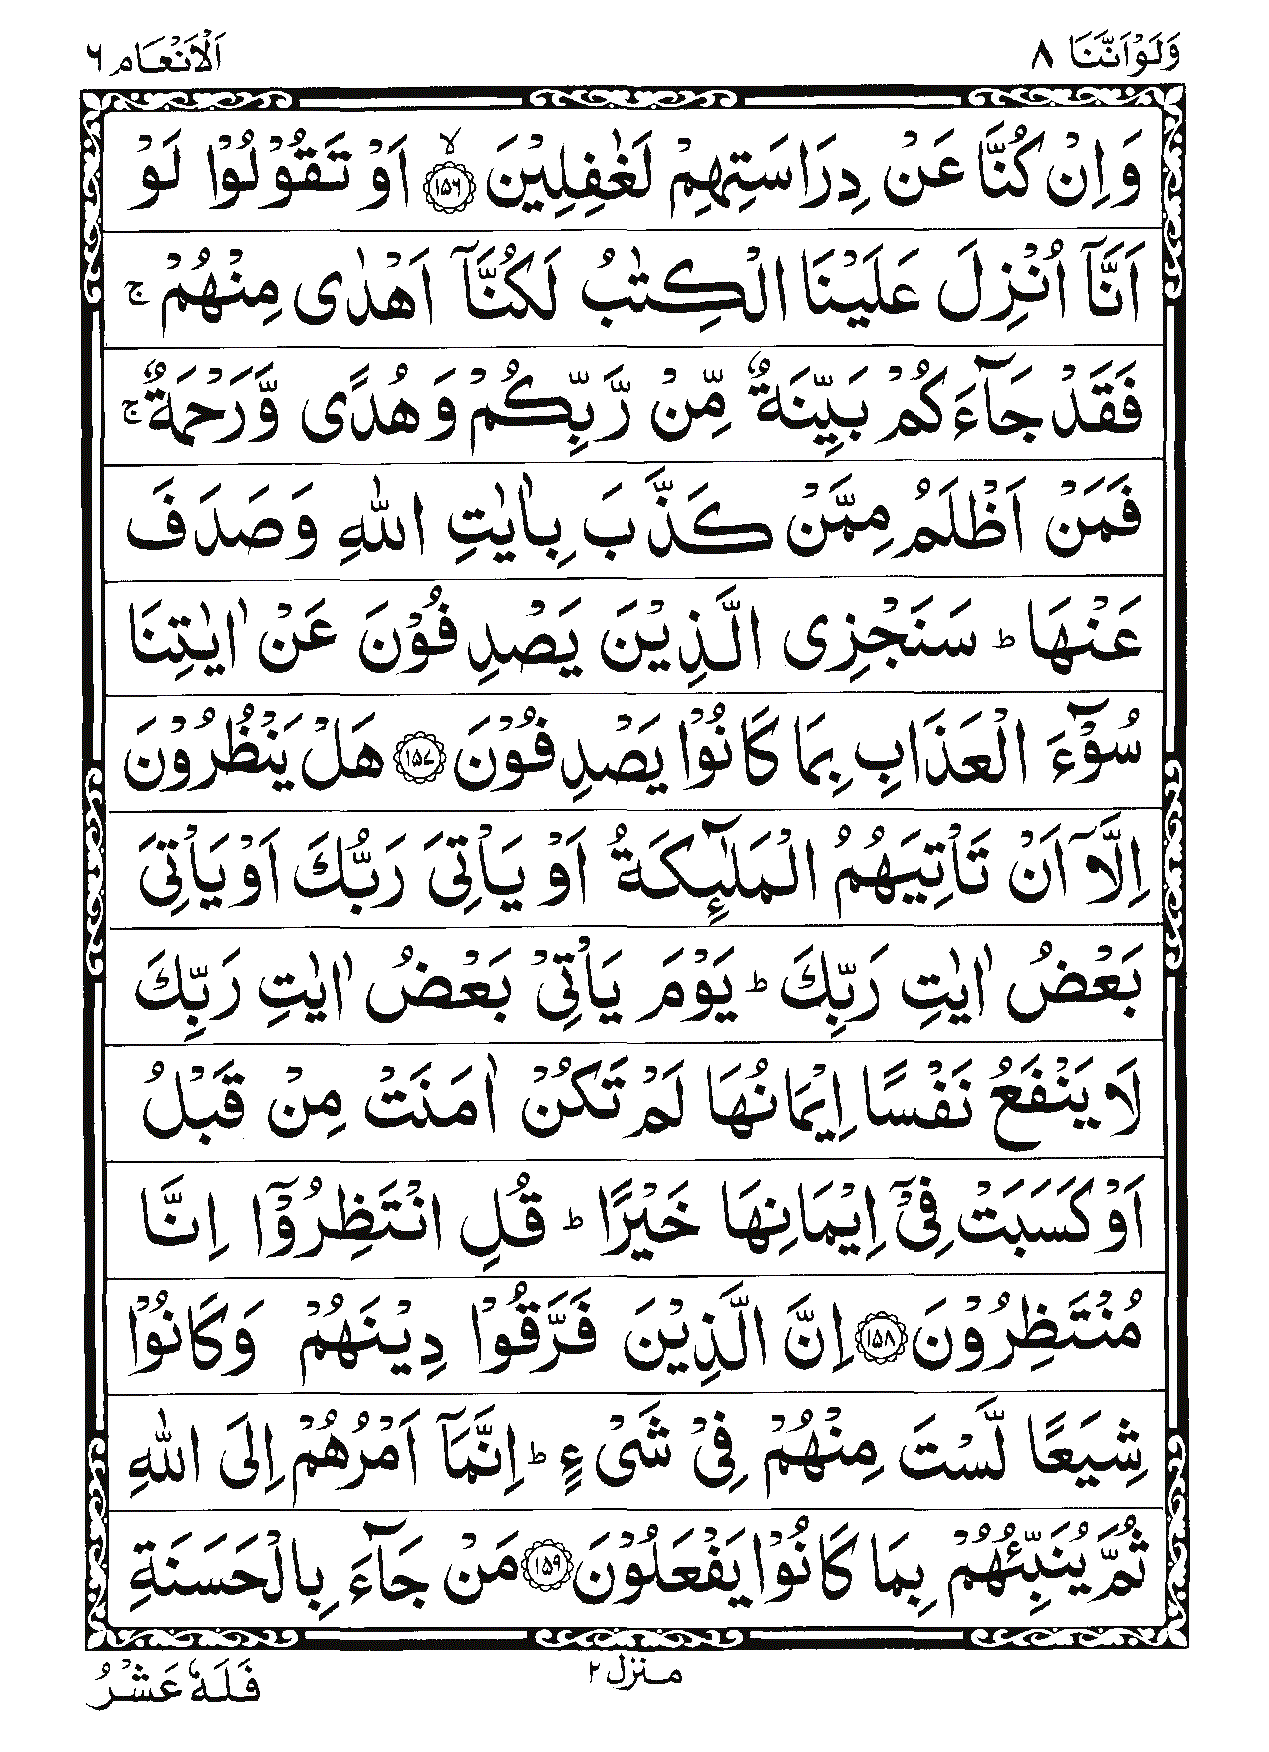 وَلَوْاَنَّنَا ٨
اَلْاَنْعَام ٦
وَاِنْ كُنَّا عَنْ دِرَاسَتِهِمْ لَغٰفِلِيْنَ ۙ﴿١٥٦﴾ اَوْ تَقُوْلُوْا لَوْ
اَنَّاۤ اُنْزِلَ عَلَيْنَا الْكِتٰبُ لَكُنَّاۤ اَهْدٰى مِنْهُمْ ۚ
فَقَدْ جَآءَكُمْ بَيِّنَةٌ مِّنْ رَّبِّكُمْ وَهُدًى وَّرَحْمَةٌ ۚ
فَمَنْ اَظْلَمُ مِمَّنْ كَذَّبَ بِاٰيٰتِ اللّٰهِ وَصَدَفَ
عَنْهَا ؕ سَنَجْزِى الَّذِيْنَ يَصْدِفُوْنَ عَنْ اٰيٰتِنَا
سُوْٓءَ الْعَذَابِ بِمَا كَانُوْا يَصْدِفُوْنَ ﴿١٥٧﴾ هَلْ يَنْظُرُوْنَ
اِلَّاۤ اَنْ تَاْتِيَهُمُ الْمَلٰٓئِكَةُ اَوْ يَاْتِىَ رَبُّكَ اَوْ يَاْتِىَ
بَعْضُ اٰيٰتِ رَبِّكَ ؕ يَوْمَ يَاْتِىْ بَعْضُ اٰيٰتِ رَبِّكَ
لَا يَنْفَعُ نَفْسًا اِيْمَانُهَا لَمْ تَكُنْ اٰمَنَتْ مِنْ قَبْلُ
اَوْ كَسَبَتْ فِىْۤ اِيْمَانِهَا خَيْرًا ؕ قُلِ انْتَظِرُوْۤا اِنَّا
مُنْتَظِرُوْنَ ﴿١٥٨﴾ اِنَّ الَّذِيْنَ فَرَّقُوْا دِيْنَهُمْ وَكَانُوْا
شِيَعًا لَّسْتَ مِنْهُمْ فِىْ شَىْءٍ ؕ اِنَّمَاۤ اَمْرُهُمْ اِلَى اللّٰهِ
ثُمَّ يُنَبِّئُهُمْ بِمَا كَانُوْا يَفْعَلُوْنَ ﴿١٥٩﴾ مَنْ جَآءَ بِالْحَسَنَةِ
منزل ٢
فَلَهٗ عَشْرُ